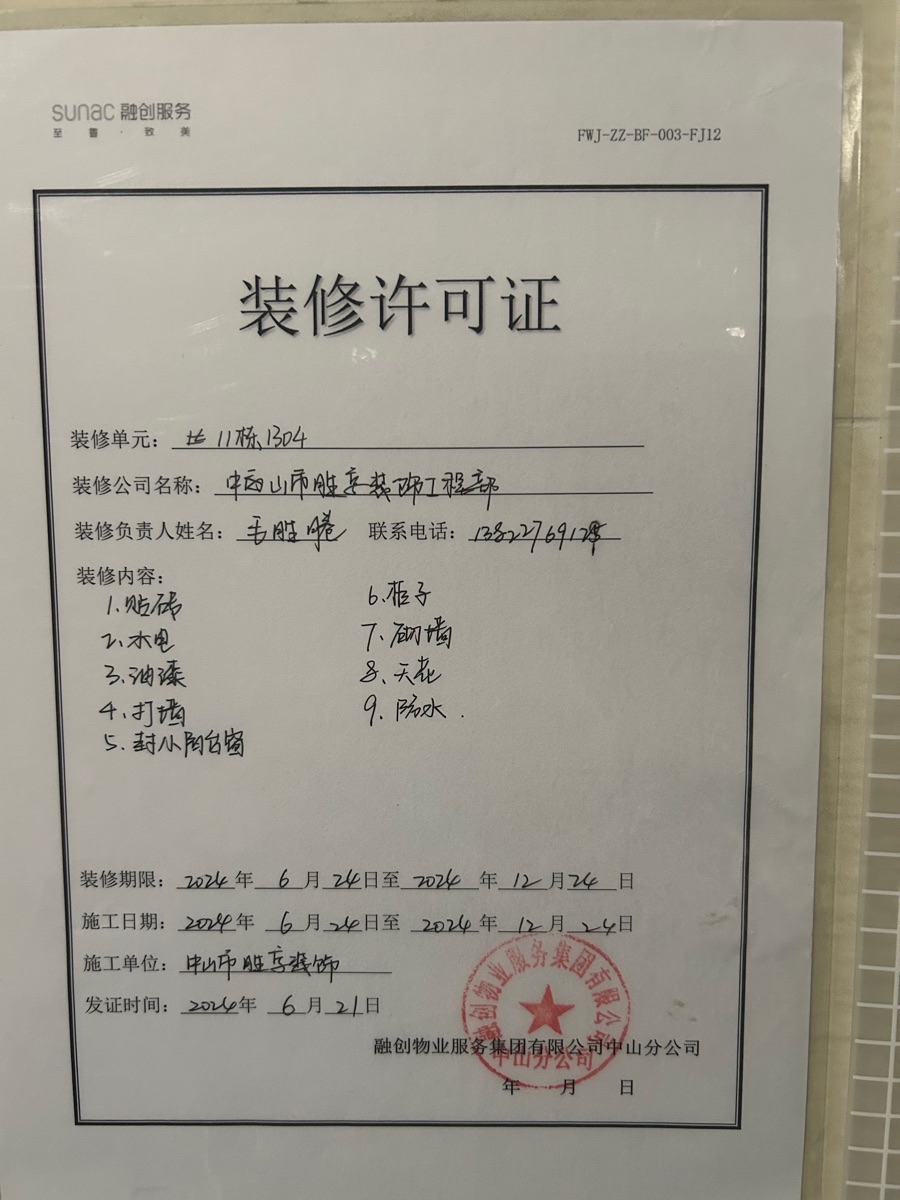 sunac 融创服务
至善·致美
FWJ-ZZ-BF-003-FJ12
装修许可证
装修单元: 11栋1304
装修公司名称: 中山市胜亨装饰工程部
装修负责人姓名: 毛胜 联系电话:
装修内容:
1.贴砖 6.柜子
2.水电 7.砌墙
3.油漆 8.天花
4.打墙 9.防水.
5.封小阳台窗
装修期限: 2024年 6 月 24日至 2024 年 12 月 24 日
施工日期: 2024年 6 月 24日至 2024年 12 月 24日
施工单位: 中山市胜亨装饰
发证时间: 2024年 6 月 21日
融创物业服务集团有限公司中山分公司
融创物业服务集团有限公司
中山分公司
年 月 日